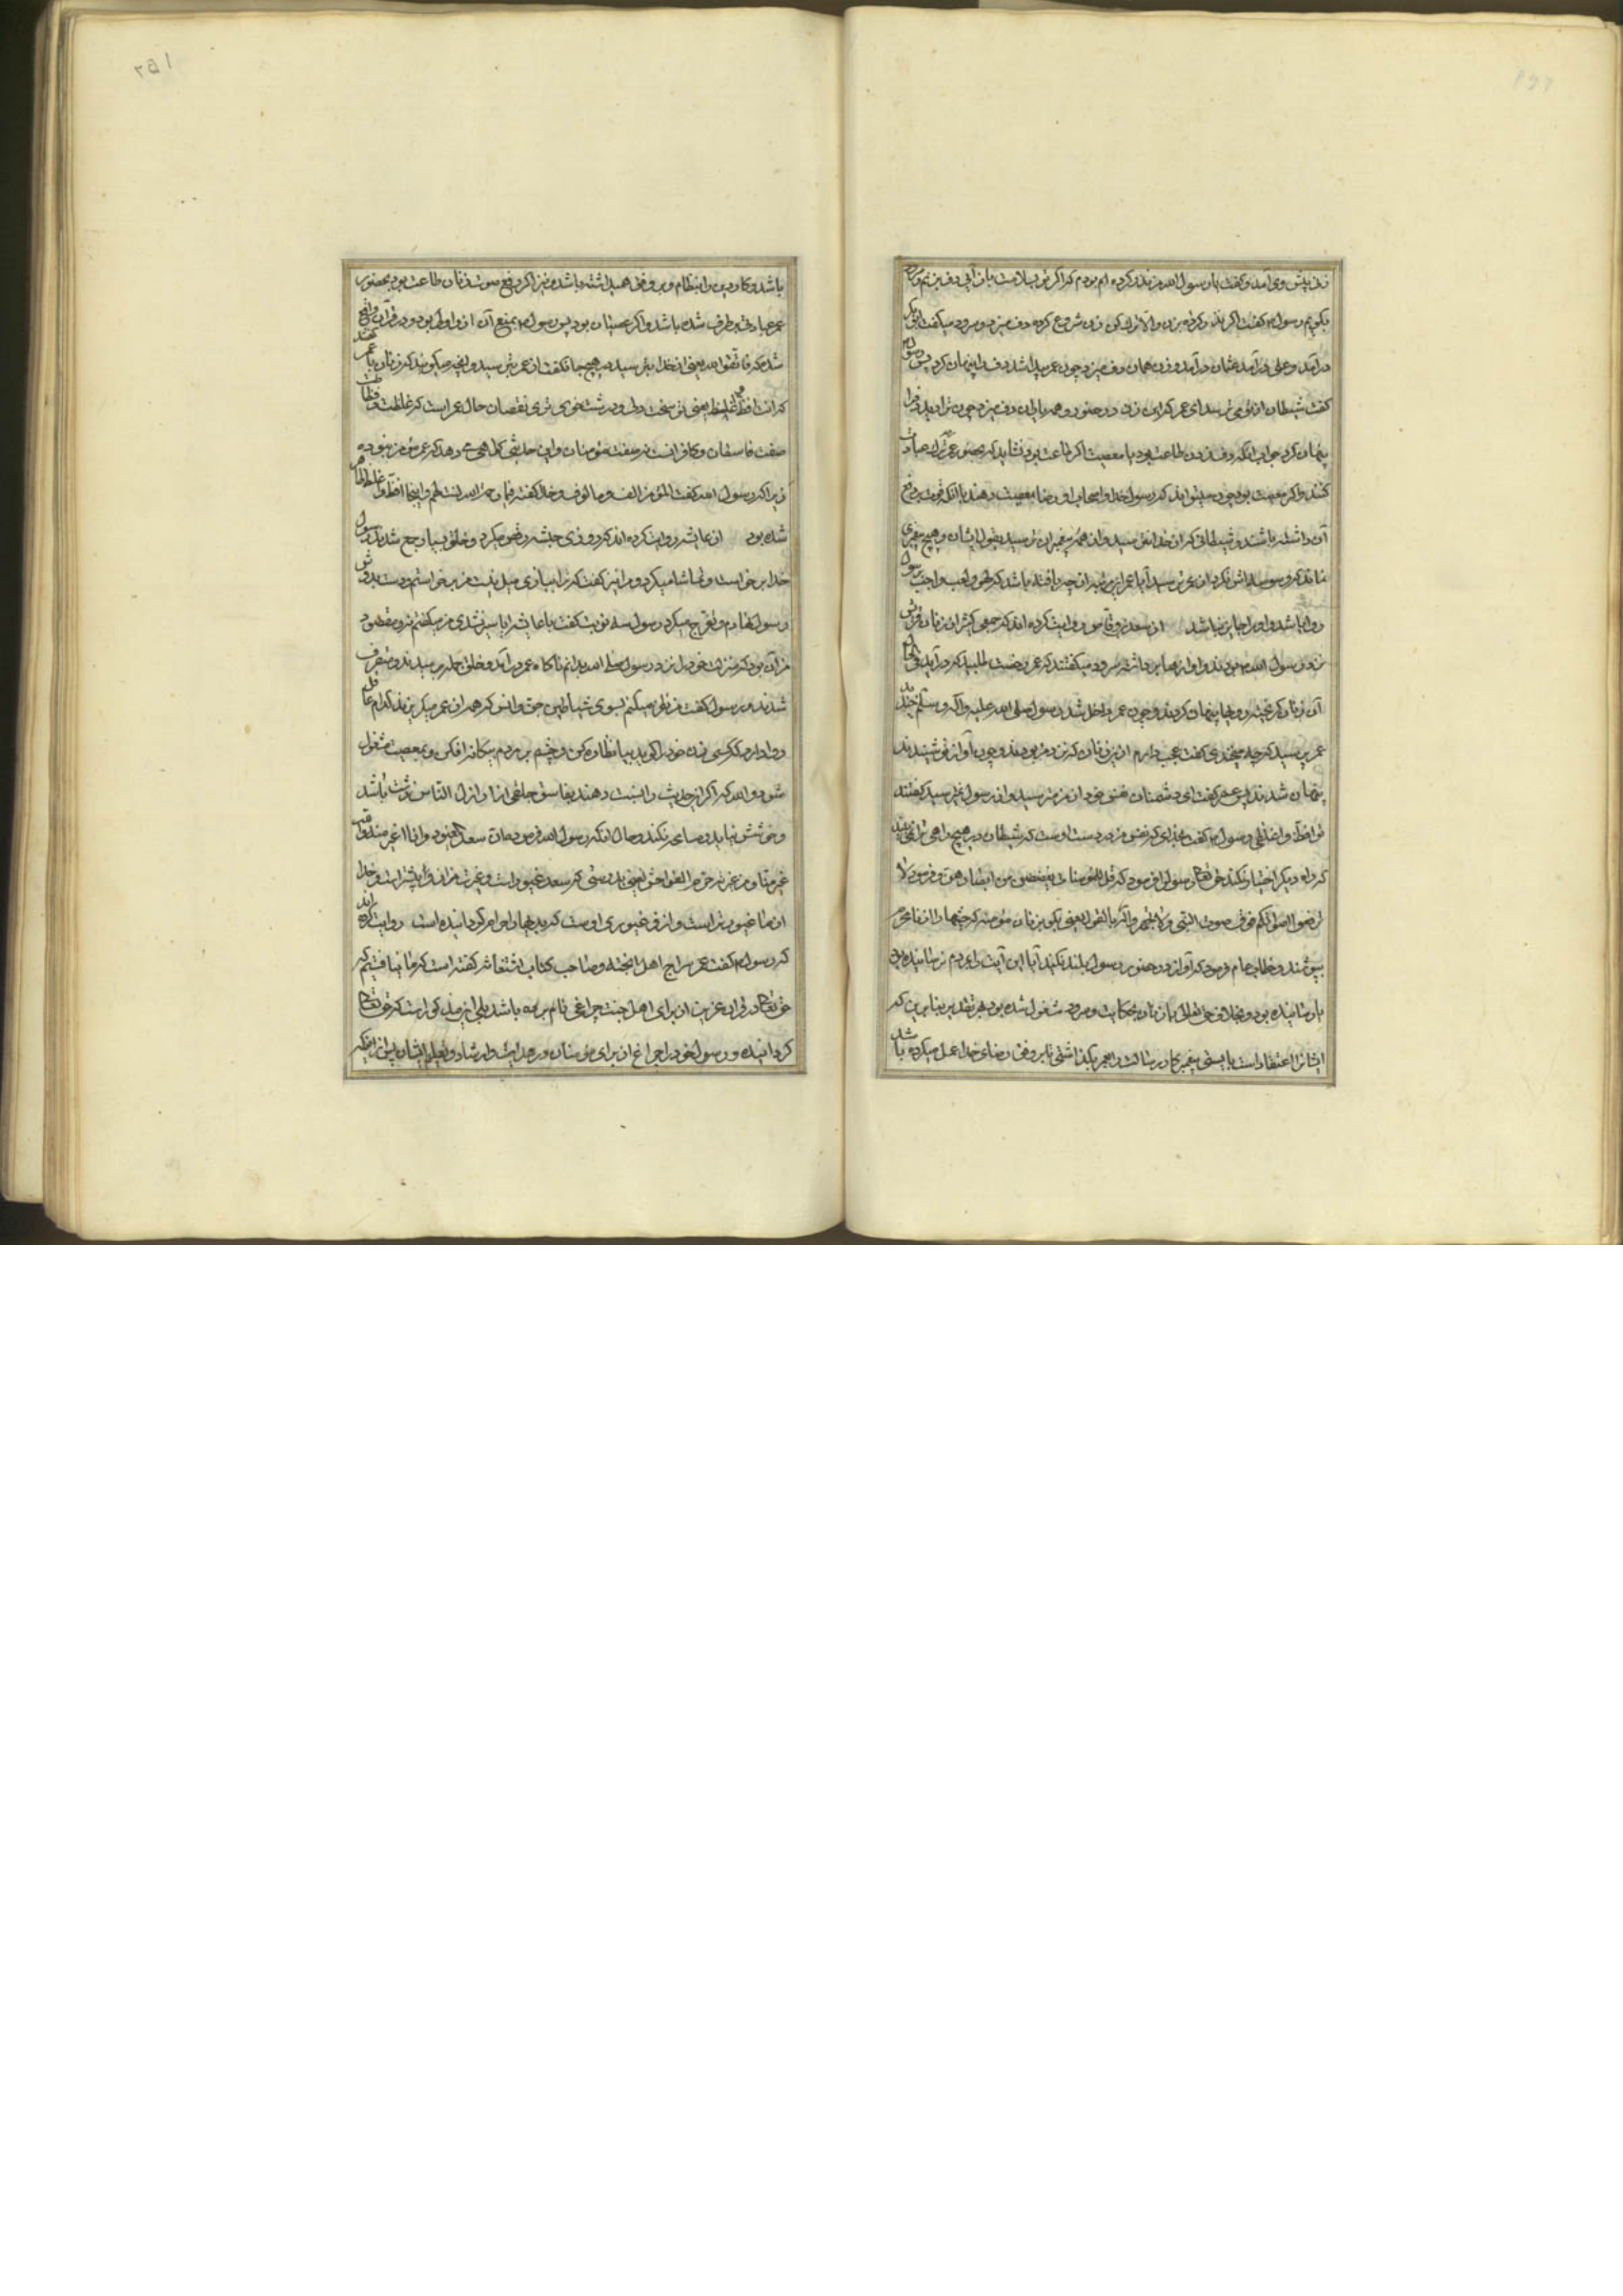 زنی پیش وی آمد و کفت یا رسول الله من نذر کرده ام بودم که اکر تو بسلامت باز آیی دف بزنم و سرود
بکویم رسول کفت اکر نذر کرده بزن والا نزن آن زن شروع کرد دف میزد و سرود میکفت ابو بکر
درآمد و علی درآمد عثمان درآمد و زن همان دف میزد چون عمر پیدا شد دف را پنهان کرد پس رسول
کفت شیطان از تو می ترسد ای عمر که این زن در حضور همه یاران دف میزد چون ترا دید دف را
پنهان کرد جواب آنکه دف زدن طاعت بود یا معصیت اکر طاعت بود نشاید که بحضور عمر ترک عبادت
کنند و اکر معصیت بود چون میتواند که رسول خدا و اصحاب او رضا بمعصیت دهند با آنکه قوت بر دفع
آن داشته باشند و شیطانی که از خدا نترسید و از همه پیغمبران نترسید بقول ایشان و هیچ پیغمبری
نماند که وسوسه اش نکرد از عمر ترسید آیا عمر این مرتبه از چه یافته باشد که لهو و لعب و اجنب رسول
روا باشد و او را جایز نباشد از سعد بن وقاص روایت کرده اند که جمعی کثیر از زنان قریش
نزد رسول الله بودند و آوازها برداشته سرود میکفتند که عمر رخصت طلبید که درآید فی الحال
آن زنان کریخته و رویها پنهان کردند و چون عمر داخل شد رسول صلی الله علیه وآله وسلم خندید
عمر پرسید که چه میخندی کفت عجب دارم از این زنان که نزد من بودند و چون آواز تو شنیدند
پنهان شدند پس عمر کفت ای دشمنان نفس خود از من ترسید و از رسول نترسید کفتند
تو افظ و اغلظی رسول کفت بخدای که نفس من در دست اوست که شیطان در هیچ راهی ترا نمی بیند
که راه دیکر اختیار نکند حق تعالی رسول را فرمود که قل للمؤمنات یغضضن من ابصارهن و فرمود لا
ترفعوا اصواتکم فوق صوت النبی ولا تجهروا له بالقول یعنی بکو بزنان مؤمنه که چشمها را از نامحرم
بپوشند و خطاب عام فرمود که آواز در حضور رسول بلند نکنید آیا این آیت را بمردم نرسانیده بود
یا رسانیده بود و بخلاف حق تعالی با زنان بحکایت و سرود مشغول شده بود بهر تقدیر بنابرین که
ایشانرا اعتقاد است بایستی پیغمبر کار رسالت را بعمر بکذاشتی تا بر وفق رضای خدا عمل میکرده باشد
باشد و کار دین را انتظام و بر وفق همی داشته باشد و نیز اکر رفع صوت زنان طاعت بود بحضور
عمر عبادتی برطرف شده باشد و اکر عصیان بود پس رسول بمنع آن از او اولی بود و در قرآن واقع
شده که فاتقوا الله یعنی از خدا بترسید در هیچ جا نکفت از عمر بترسید و آنچه میکویند که زنان با عمر کفتند
که انت افظ و اغلظ یعنی تو سخت دل و درشت خوی تری نقصان حال عمر است که غلظت و فظاظت
صفت فاسقان و کافرانست نه صفت مؤمنان و این حدیث کواهی می دهد که عمر مؤمن نبوده
زیرا که رسول الله کفت المؤمن الف و مالوف و خدا کفته فبما رحمة من الله لنت لهم و اینجا افظ و اغلظ ظاهر
شده بود از عایشه روایت کرده اند که روزی حبشه رقص میکرد و خلق بسیار جمع شدند رسول
خدا برخواست و تماشا میکرد و مرا نیز کفت که ترا ببازی میل نیست من برخواستم و دست بدوش
رسول نهادم و تفرج میکرد رسول سه نوبت کفت یا عایشه آیا سیر نشدی من میکفتم نه و مقصود
من آن بود که منزلت خود را نزد رسول صلی الله بدانم ناکاه عمر درآمد و خلق جمله رمیدند و متفرق
شدند رسول کفت من نظر میکنم بسوی شیاطین جن و انس که همه از عمر میکریزند کدام عاقل
روا دارد که کسی زن خود را کوید بیا نظاره کن و چشم بر مردم بیکانه افکن و بمعصیت مشغول
شو و والله که اکر این حدیث را نسبت دهند بفاسق جلفی از اراذل الناس زشت باشد
و خوشش نیاید و مباهی نکند و حال آنکه رسول الله فرموده ان سعدا لغیور و انا اغیر منه و الله
اغیر منا و من غیرته حرم الفواحش یعنی بدرستی که سعد غیور است و غیرت من از او بیشتر است و خدا
از ما غیورتر است و از غیوری اوست که بدیها را حرام کردانیده است روایت کرده اند
که رسول کفت عمر سراج اهل الجنة و صاحب کتاب استغاثه کفته است که ما نیافتیم که
حق تعالی در قرآن عزیز از برای اهل جنت چراغی نام برده باشد بلی این مذکور است که حق تعالی
کردانیده و رسول خود را چراغ از برای مؤمنان در هدایت و ارشاد و تعلیم ایشان پس از آنکه